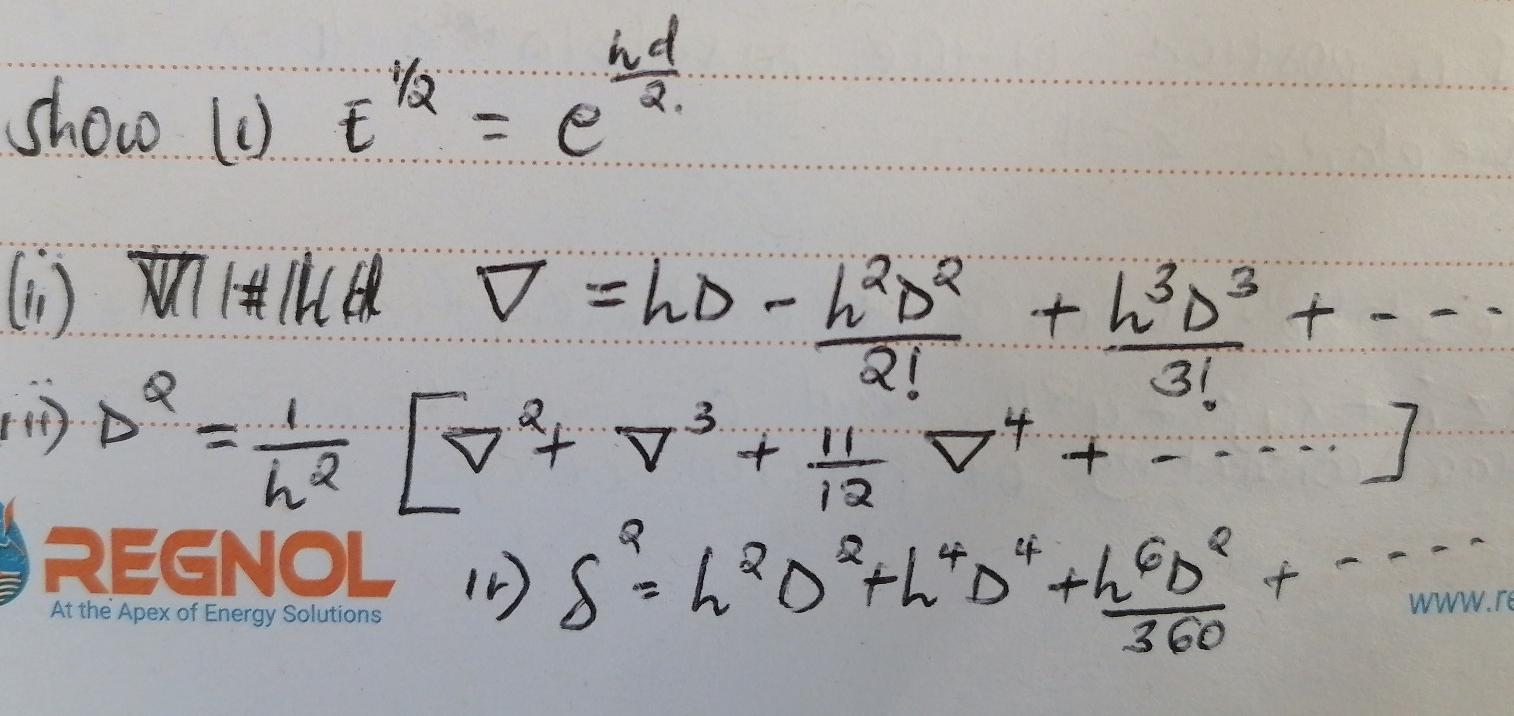 show (i) E^{1/2} = e^{\frac{hd}{2.}}
(ii) ∇ = hD - \frac{h^2D^2}{2!} + \frac{h^3D^3}{3!} + - - -
iii) D^2 = \frac{1}{h^2} [∇^2 + ∇^3 + \frac{11}{12} ∇^4 + - - - - - ]
REGNOL
At the Apex of Energy Solutions
iv) δ^2 = h^2D^2 + h^4D^4 + \frac{h^6D^2}{360} + - - - -
www.re